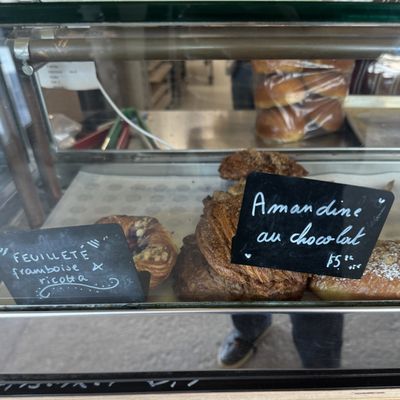 FEUILLETÉ
framboise
ricotta
Amandine
au chocolat